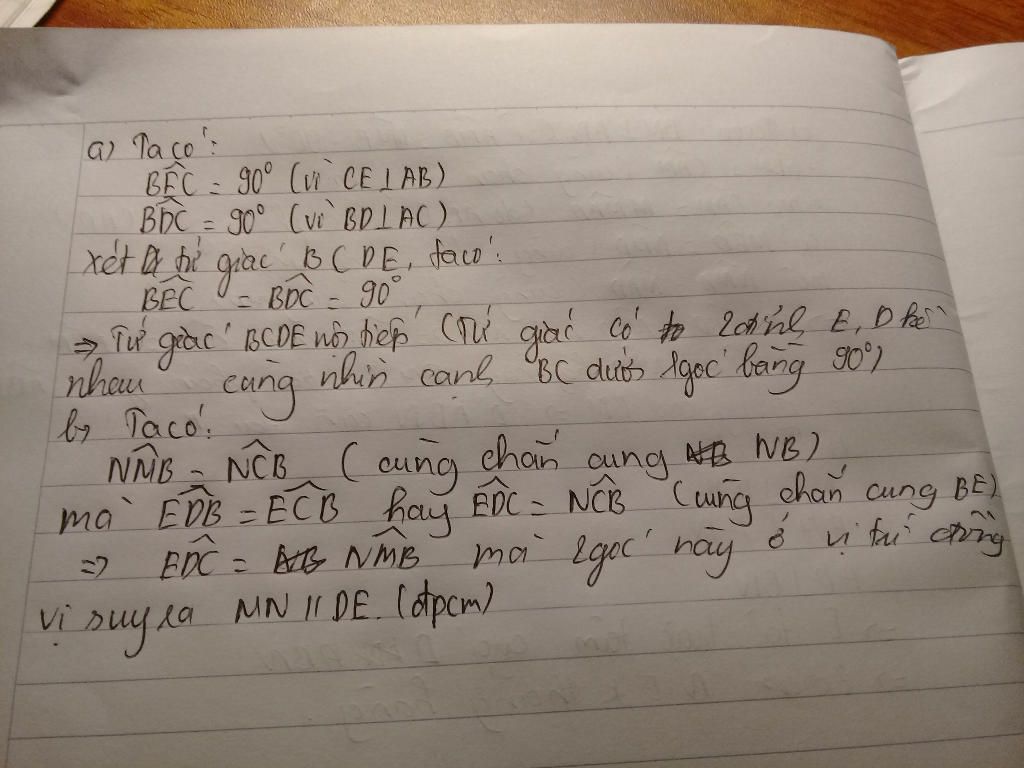 a) Ta có:
BEC = 90° (vì CE⊥AB)
BDC = 90° (vì BD⊥AC)
xét tứ giác BCDE, ta có:
BEC = BDC = 90°,
⇒ Tứ giác BCDE nội tiếp (Tứ giác có 2 đỉnh E, D kề
nhau cùng nhìn cạnh BC dưới 1 góc bằng 90°)
b, Ta có:
NMB = NCB (cùng chắn cung NB)
mà EDB = ECB hay EDC = NCB (cùng chắn cung BE)
⇒ EDC = NMB mà 2 góc này ở vị trí đồng
vị suy ra MN // DE. (đpcm)